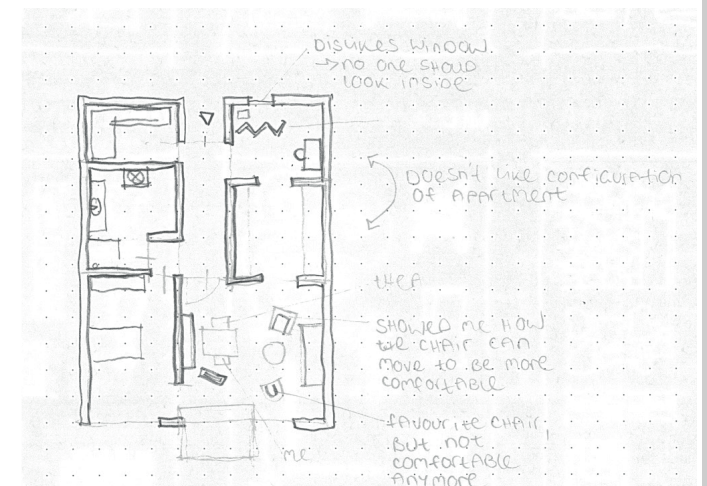 DISLIKES WINDOW.
→ no one should
LOOK INSIDE
Doesn't like configuration
of Apartment
SHOWED ME HOW
the CHAIR CAN
MOVE TO BE MORE
COMFORTABLE
FAVOURITE CHAIR.
BUT NOT
COMFORTABLE
ANYMORE
me